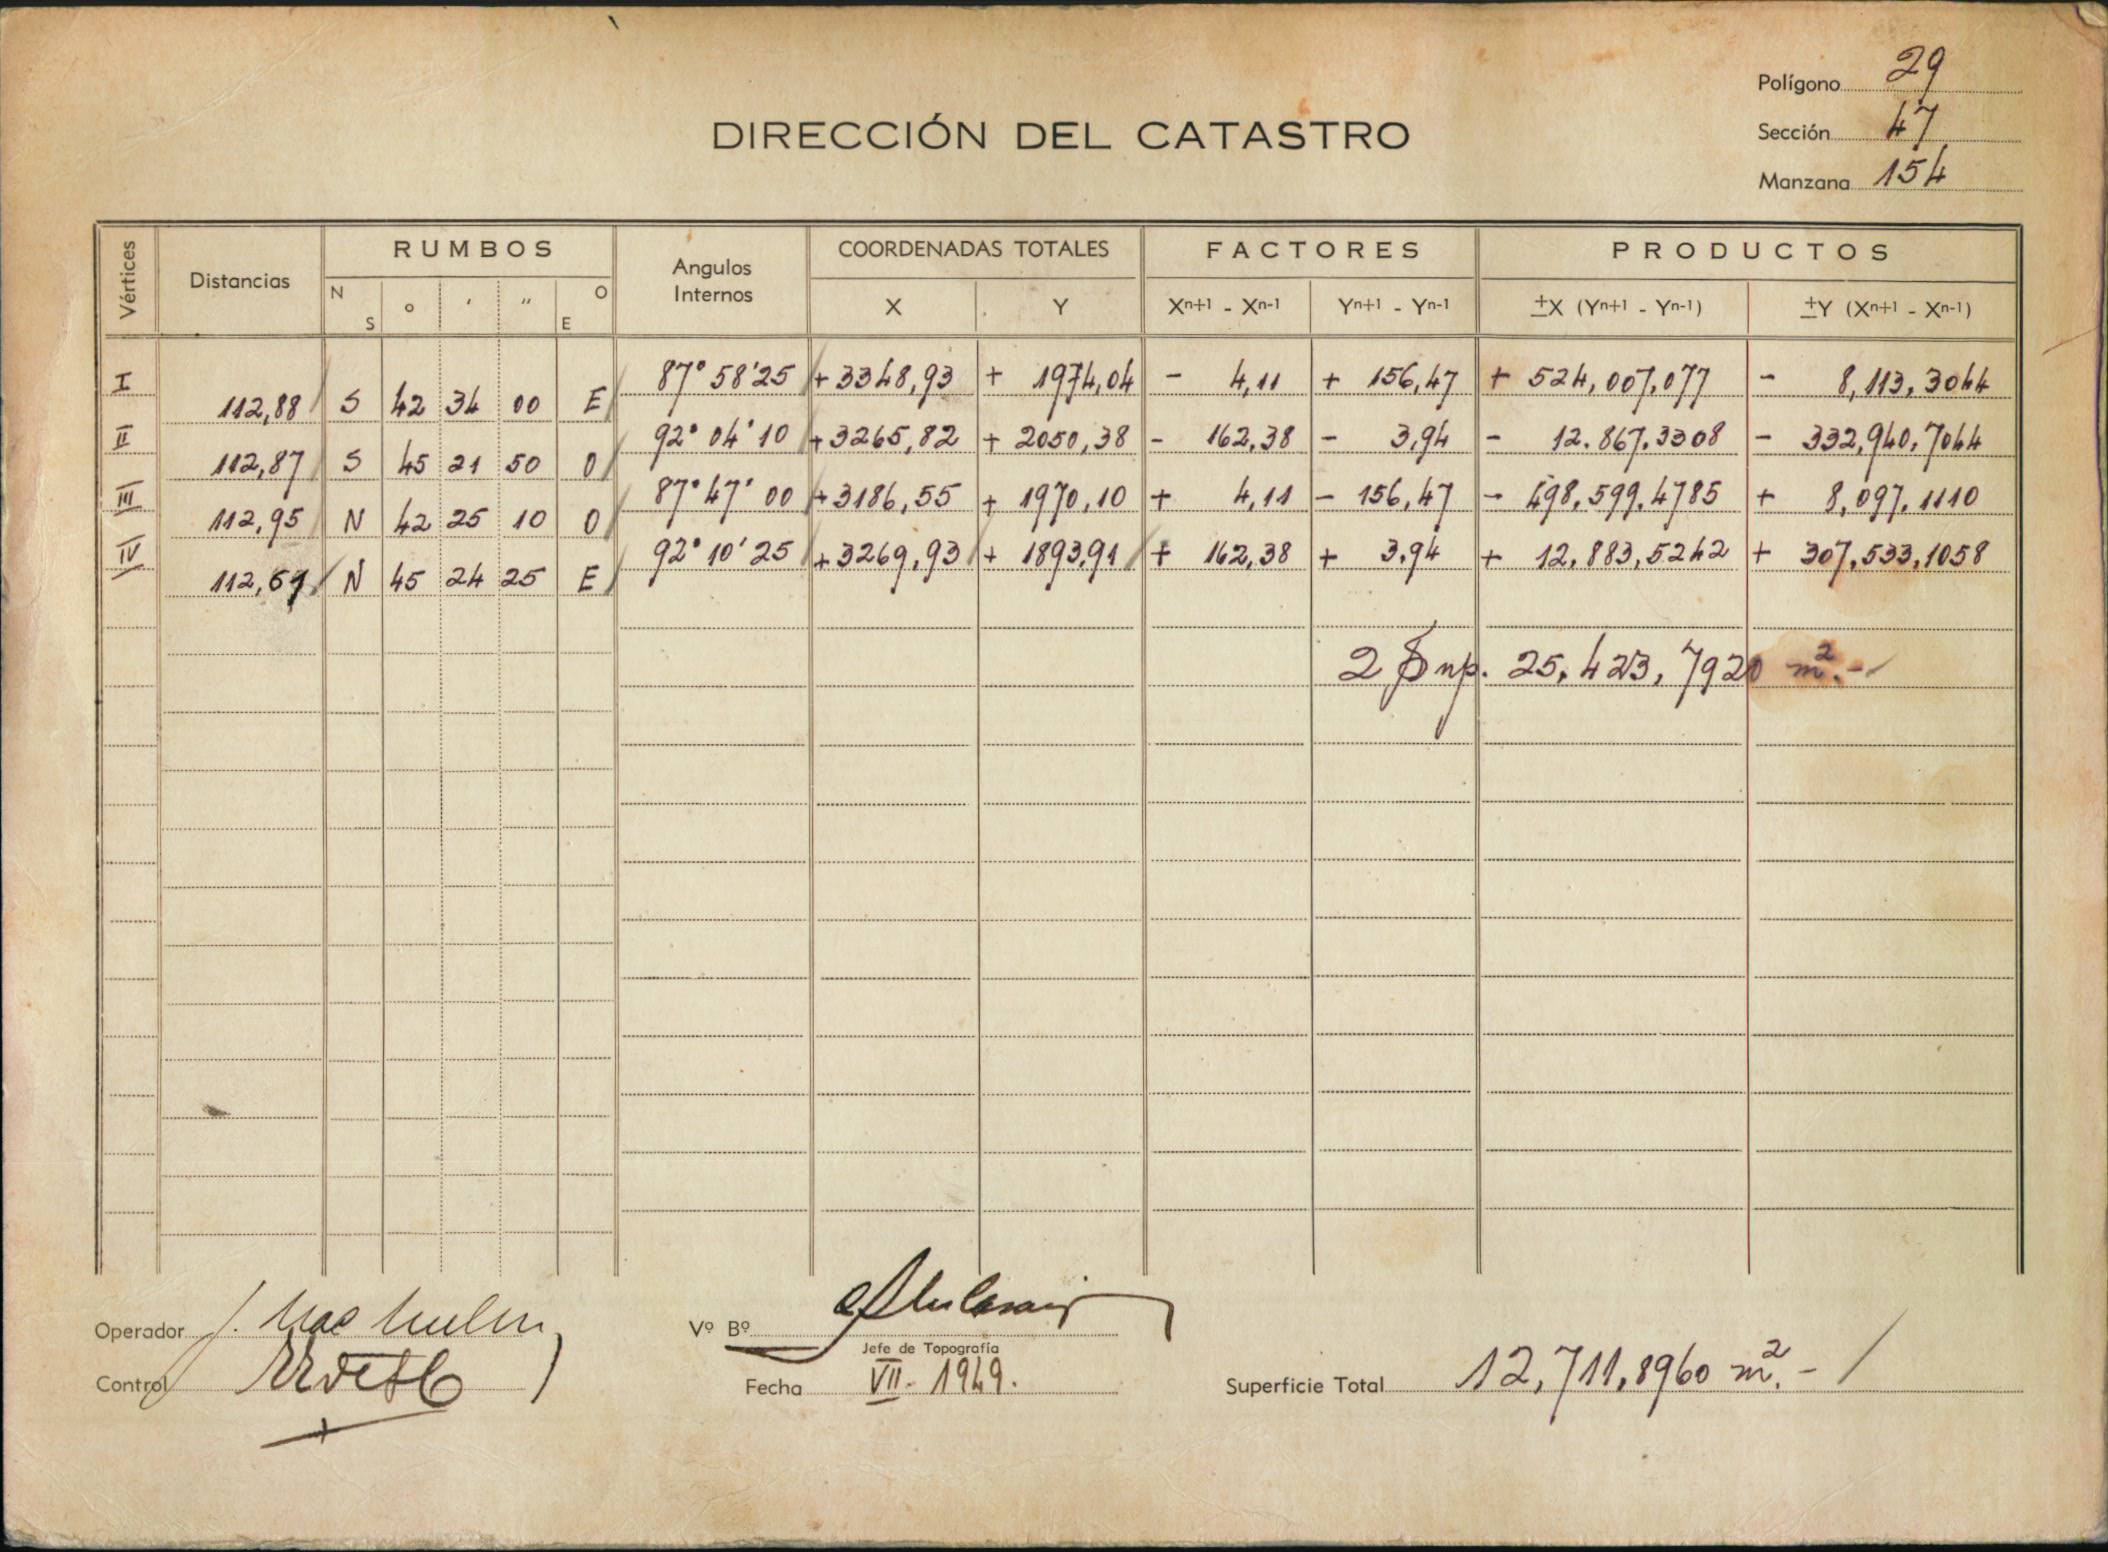 Polígono 29
DIRECCIÓN DEL CATASTRO
Sección 47
Manzana 154
Vértices Distancias RUMBOS Angulos Internos COORDENADAS TOTALES FACTORES PRODUCTOS
N S ° ' " O E X Y Xn+1 - Xn-1 Yn+1 - Yn-1 ±X (Yn+1 - Yn-1) ±Y (Xn+1 - Xn-1)
I 87° 58' 25 +3348,93 + 1974,04 - 4,11 + 156,47 + 524,007,077 - 8,113,3044
112,88 S 42 34 00 E
II 92° 04' 10 +3265,82 + 2050,38 - 162,38 - 3,94 - 12.867,3308 - 332,940,7044
112,87 S 45 21 50 O
III 87° 47' 00 +3186,55 + 1970,10 + 4,11 - 156,47 - 498,599,4785 + 8,097,1110
112,95 N 42 25 10 O
IV 92° 10' 25 +3269,93 + 1893,91 + 162,38 + 3,94 + 12,883,5242 + 307,533,1058
112,69 N 45 24 25 E
2 Sup. 25,423,7920 m².-
Operador J. Mac
Vº Bº
Jefe de Topografía
Control
Fecha VII - 1949.
Superficie Total 12,711,8960 m².-